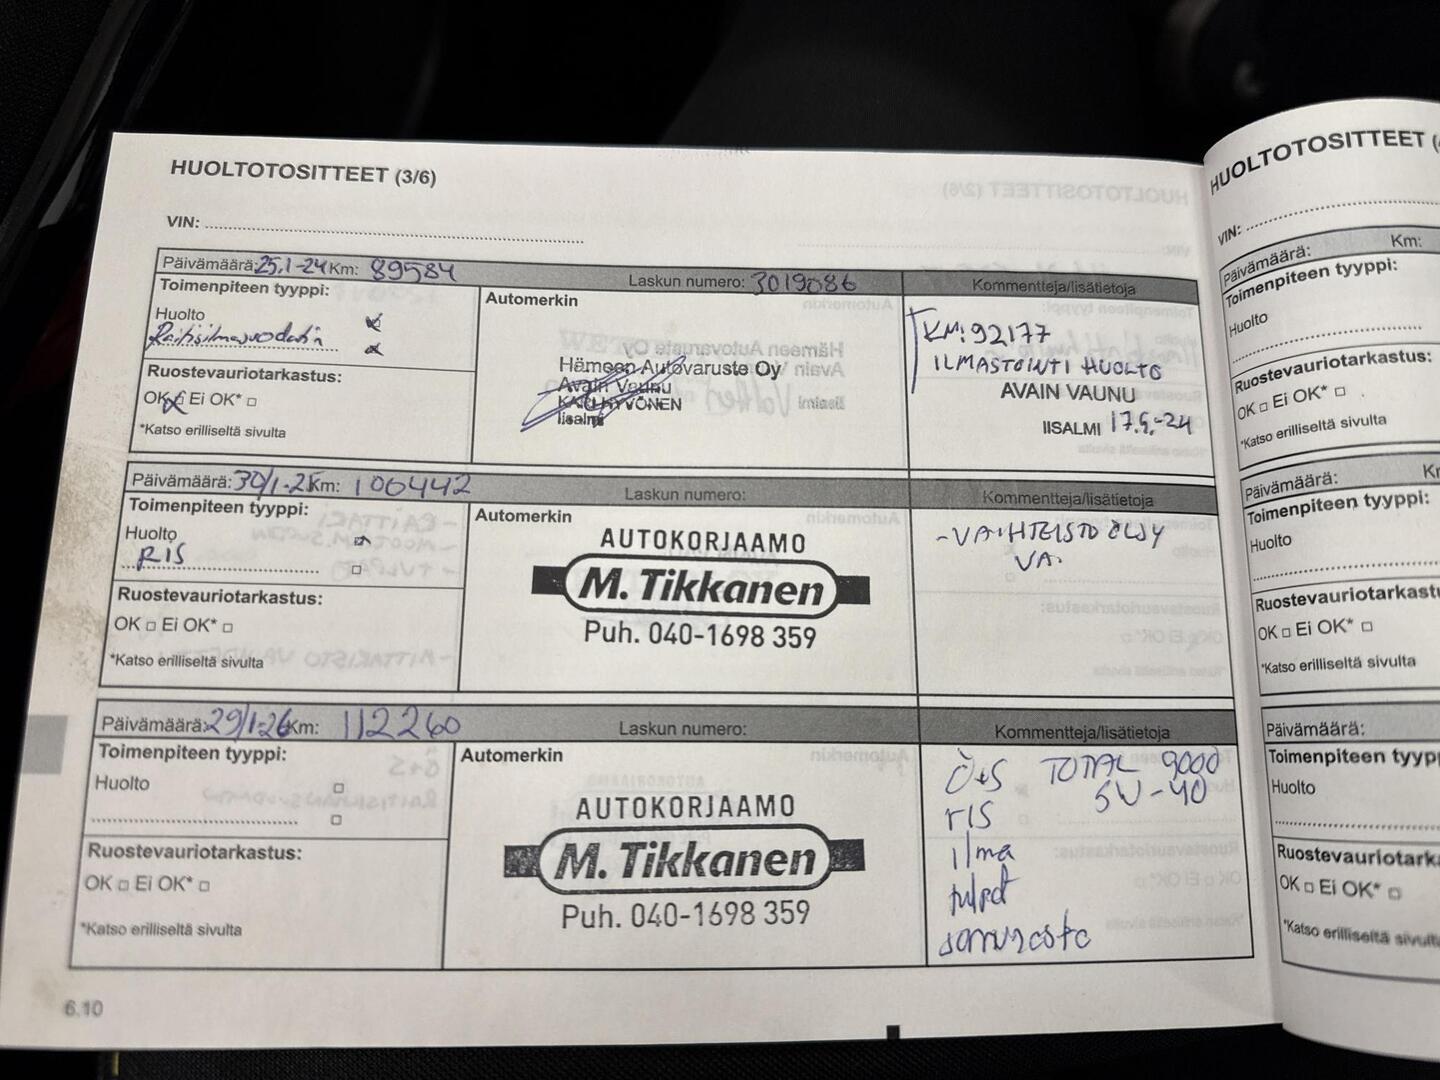 HUOLTOTOSITTEET (3/6)
VIN:
Päivämäärä: 25.1-24 Km: 89584
Laskun numero: 3019086
Kommentteja/lisätietoja
Toimenpiteen tyyppi:
Huolto
Raitisilmasuodatin
Ruostevauriotarkastus:
OK Ei OK*
*Katso erilliseltä sivulta
Automerkin
Hämeen Autovaruste Oy
Avain Vaunu
KARI HYVÖNEN
Iisalmi
KM: 92177
ILMASTOINTI HUOLTO
AVAIN VAUNU
IISALMI 17.5.-24
Päivämäärä: 30/1-25 Km: 106442
Laskun numero:
Kommentteja/lisätietoja
Toimenpiteen tyyppi:
Huolto
RIS
Ruostevauriotarkastus:
OK Ei OK*
*Katso erilliseltä sivulta
Automerkin
AUTOKORJAAMO
M. Tikkanen
Puh. 040-1698 359
-VAIHTEISTO ÖLJY
VA.
Päivämäärä: 29/1-26 Km: 112260
Laskun numero:
Kommentteja/lisätietoja
Toimenpiteen tyyppi:
Huolto
Ruostevauriotarkastus:
OK Ei OK*
*Katso erilliseltä sivulta
Automerkin
AUTOKORJAAMO
M. Tikkanen
Puh. 040-1698 359
Ö+S TOTAL 9000
5W-40
rIS
ilma
tulpat
6.10
HUOLTOTOSITTEET
VIN:
Päivämäärä: Km:
Toimenpiteen tyyppi:
Huolto
Ruostevauriotarkastus:
OK Ei OK*
*Katso erilliseltä sivulta
Päivämäärä:
Toimenpiteen tyyppi:
Huolto
OK Ei OK*
*Katso erilliseltä sivulta
Päivämäärä:
Huolto
OK Ei OK*
*Katso erilliseltä